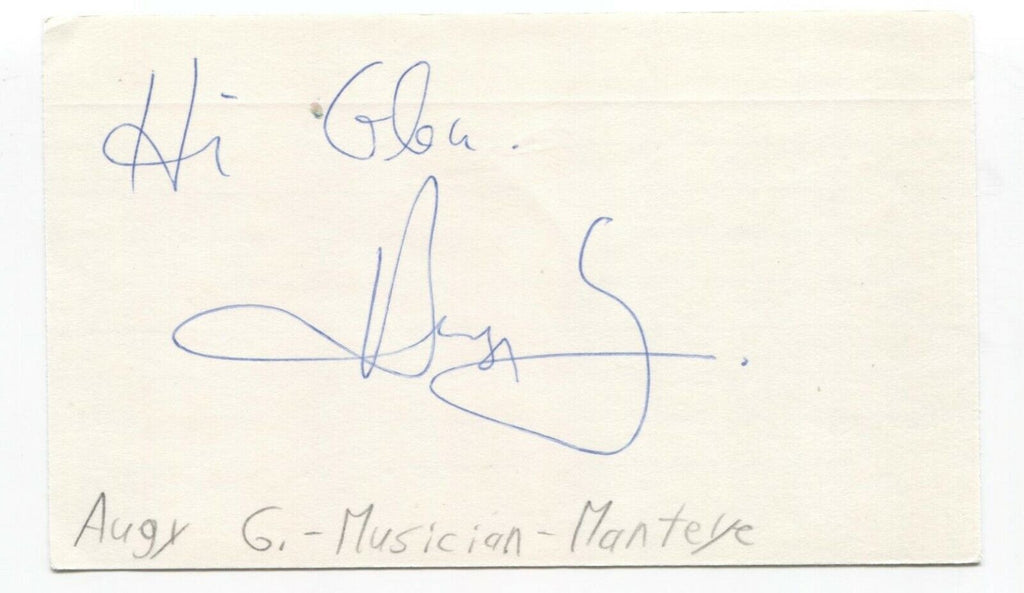 Hi Glen.
Augy G.
Augy G.-Musician-Manteye